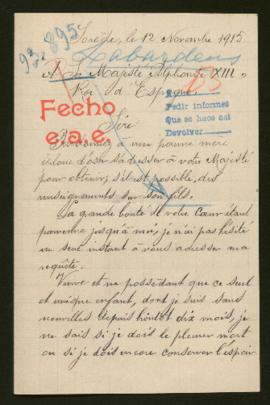 Sorède, le 12 Novembre 1915
93 895
Labardens
A Sa Majesté Alphonse XIII
Roi d'Espagne
Fecho
e.a.e.
Pedir informes
Que se hace así
Devolver
Sire
Pardonnez à une pauvre mère
d'oser s'adresser à votre Majesté
pour obtenir, s'il est possible, des
renseignements sur son fils.
La grande bonté de votre Cœur étant
parvenue jusqu'à moi, je n'ai pas hésité
un seul instant à vous adresser ma
requête.
Veuve et ne possédant que ce seul
et unique enfant, dont je suis sans
nouvelles depuis bientôt dix mois, je
ne sais si je dois le pleurer mort
ou si je dois encore conserver l'espoir